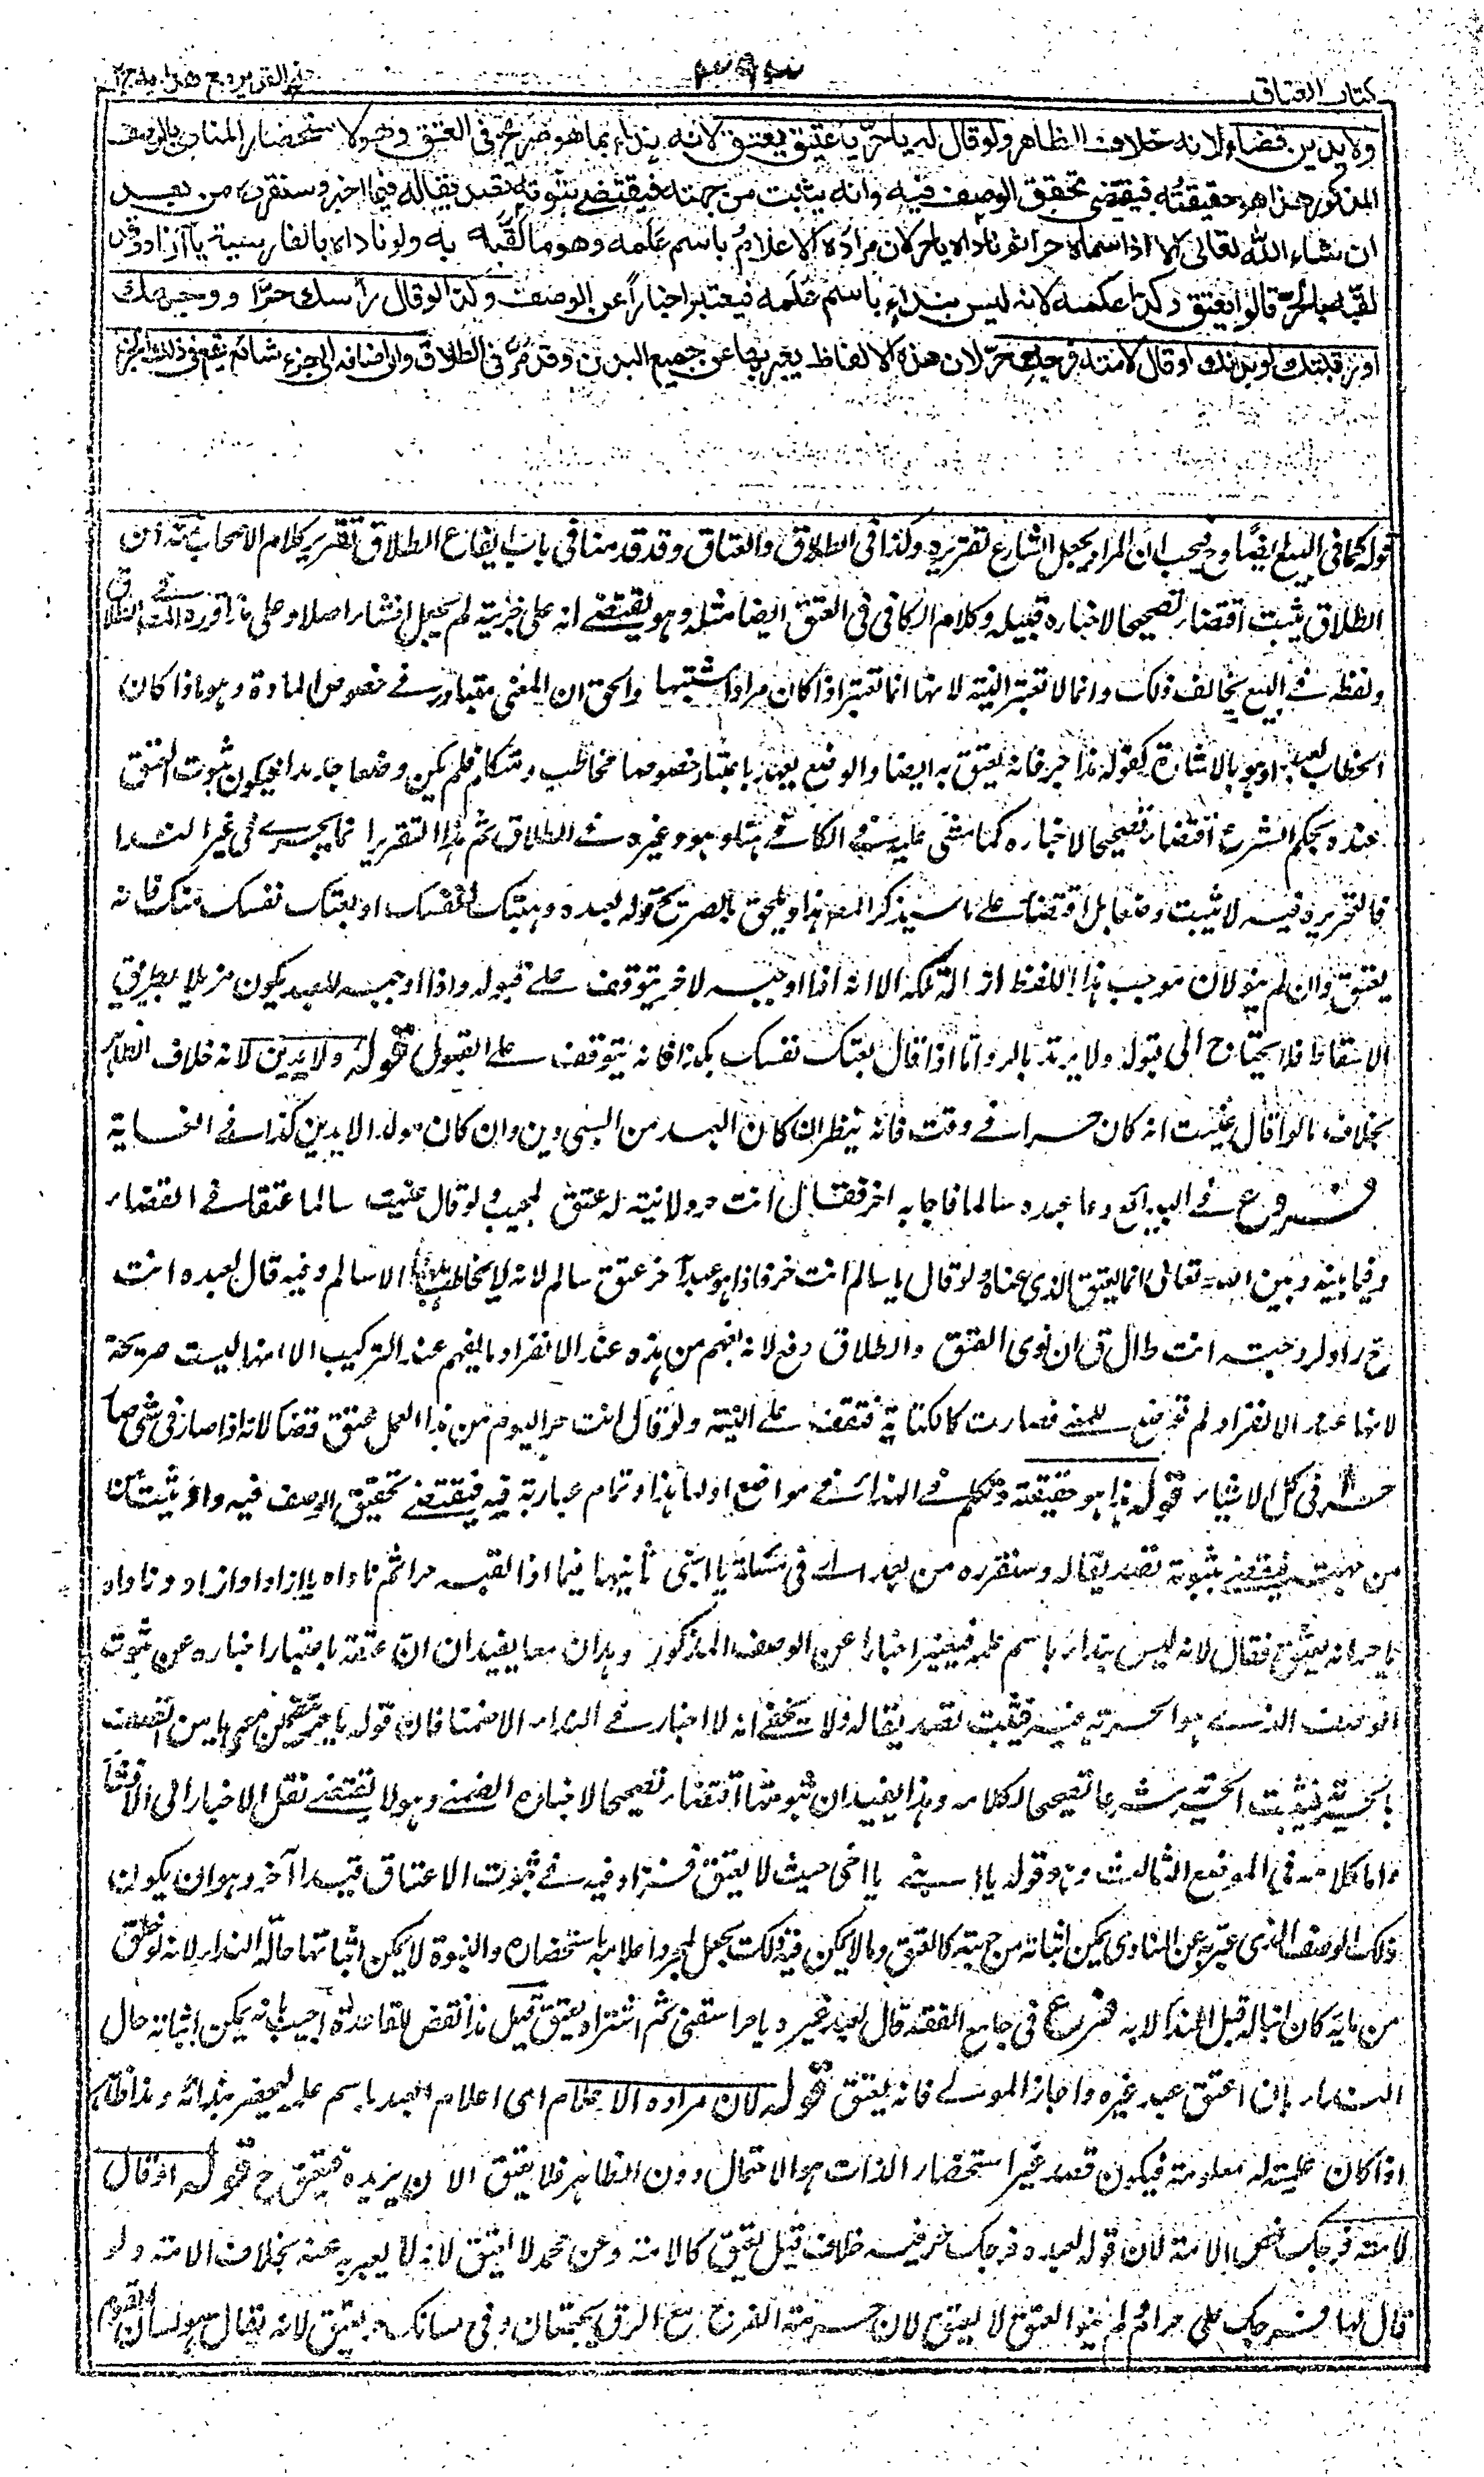 كتاب العتاق
فتح القدير مع هدايه ج٢
ولا يدين قضاء لانه خلاف الظاهر ولو قال له يا حر يا عتيق يعتق لانه نداء بما هو صريح في العتق وهو لاستحضار المنادى بالوصف
المذكور هذا هو حقيقته فيقتضي تحقق الوصف فيه وانه يثبت من جهته فيقتضي بثبوته تصديقا له فيما اخبر وسنقرره من بعد
ان شاء الله تعالى الا اذا سماه حرا ثم ناداه يا حر لان مراده الاعلام باسم علمه وهو ما لقبه به ولو ناداه بالفارسية يا آزاد وقد
لقبه بالحر قالوا يعتق وكذا عكسه لانه ليس بنداء باسم علمه فيعتبر اخبارا عن الوصف وكذا لو قال رأسك حر او وجهك
او رقبتك او بدنك او قال لامته فرجك حر لان هذه الالفاظ يعبر بها عن جميع البدن وقد مر في الطلاق وان اضافه الى جزء شائع يقع في ذلك الجزء
قوله كما في البيع ايضا وح فيجب ان المراد بجعل الشارع تقريره وكذا في الطلاق والعتاق وقد قدمنا في باب ايقاع الطلاق تقرير كلام الاصحاب منه ان
الطلاق يثبت اقتضاء تصحيحا لاخباره قبيله وكلام الكافي في العتق ايضا مثله وهو يقتضي انه على خبريته لم يجعل انشاء اصلا وعلى ما قرره المص في الطلاق
ولفظه في البيع يخالف ذلك وانما لا تعتبر النية لانها انما تعتبر اذا كان مراد مشتبها والحق ان المعنى متبادر في خصوص المادة وهو ما اذا كان
الخطاب لعبده او هو بالاشارة كقوله هذا حر فانه يعتق به ايضا والوضع بعد باعتبار خصوصهما مخاطب ومتكلم فلم يكن وضعا جديدا فيكون ثبوت العتق
عنده بحكم الشرع اقتضاء تصحيحا لاخباره كما مشى عليه في الكافي هنا وهو وغيره في الطلاق ثم هذا التقرير انما يجري في غير النداء
فالتحرير فيه لا يثبت وضعا بل اقتضاء على ما سيذكر المص هذا ويلحق بالصريح قوله لعبده وهبتك لنفسك او بعتك نفسك منك فانه
يعتق وان لم ينو لان موجب هذا اللفظ ازالة ملكه الا انه اذا اوجبه لاخر يتوقف على قبوله واذا اوجبه للعبد يكون مزيلا بطريق
الاسقاط فلا يحتاج الى قبوله ولا يرتد بالرد واما اذا قال بعتك نفسك بكذا فانه يتوقف على القبول قوله ولا يدين لانه خلاف الظاهر
بخلاف ما لو قال عنيت انه كان حرا في وقت فانه ينظر ان كان العبد من السبي دين وان كان مولدا لا يدين كذا في الغاية
فروع في البدائع دعا عبده سالما فاجابه اخر فقال انت حر ولا نية له عتق المجيب ولو قال عنيت سالما عتقا في القضاء
وفيما بينه وبين الله تعالى انما يعتق الذي عناه ولو قال يا سالم انت حر فاذا هو عبد آخر عتق سالم لانه لا يخاطب هنا الا سالم وفيه قال لعبده انت
ح ر او لزوجته انت ط ال ق ان نوى العتق والطلاق وقع لانه يفهم من هذه عند الانفراد ما يفهم عند التركيب الا انها ليست صريحة
لانها عند الانفراد لم توضع للمعنى فصارت كالكناية فتقف على النية ولو قال انت حر اليوم من هذا العمل عتق قضاء لانه اذا صار في شئ صار
حرا في كل الاشياء قوله هذا هو حقيقته وتكلم في النداء في مواضع اولها هذا وتمام عبارته فيه فيقتضي تحقيق الوصف فيه وانه يثبت من
من جهته فيقضى بثبوته تصديقا له وسنقرره من بعد اي في مسئلة يا ابني ثانيها فيما اذا لقبه حرا ثم ناداه يا ازاد او ازاد وناداه
يا حر انه يعتق فقال لانه ليس بنداء باسم علمه فيعتبر اخبارا عن الوصف المذكور وهذان معا يفيدان ان عتقه باعتبار اخباره عن ثبوت
الوصف الذي هو الحرية فيه فيثبت تصديقا له ولا يخفى انه لا اخبار في النداء الا ضمنا فان قوله يا حر تضمن معنى يا من اتصف
بالحرية فيثبت الحرية شرعا تصحيحا لكلامه وهذا يفيد ان ثبوتها اقتضاء تصحيحا لاخباره الضمني وهو لا يقتضي نقل الاخبار الى الانشاء
واما كلامه في الموضع الثالث وهو قوله يا ابني يا اخي حيث لا يعتق فزاد فيه في ثبوت الاعتاق قيدا آخر وهو ان يكون
ذلك الوصف الذي عبر به عن المنادى يمكن اثباته من جهته كالعتق وما لا يمكن فيه ذلك يجعل لمجرد اعلامه باستحضاره والبنوة لا يمكن اثباتها حالة النداء لانه لو خلق
من مائه كان ابنا له قبل النداء لا به فروع في جامع الفقه قال لعبد غيره يا حر اسقني ثم اشتراه يعتق قيل هذا نقض للقاعدة اجيب بانه يمكن اثباته حال
النداء بان اعتق عبد غيره واجاز المولى فانه يعتق قوله لان مراده الاعلام اي اعلام العبد باسم علمه ليحضر بندائه وهذا ظاهر
اذا كان علميته له معلومة فيكون قصد غير استحضار الذات هو الاحتمال دون الظاهر فلا يعتق الا ان يزيده فيعتق ح قوله او قال
لامته فرجك خص الامة لان قوله لعبده فرجك حر فيه خلاف قيل يعتق كالامة وعن محمد لا يعتق لانه لا يعبر به عنه بخلاف الامة ولو
قال لها فرجك علي حرام لم ينو العتق لا يعتق لان حرمة الفرج مع الرق يجتمعان وفي لسانك حر يعتق لانه يقال هو لسان القوم